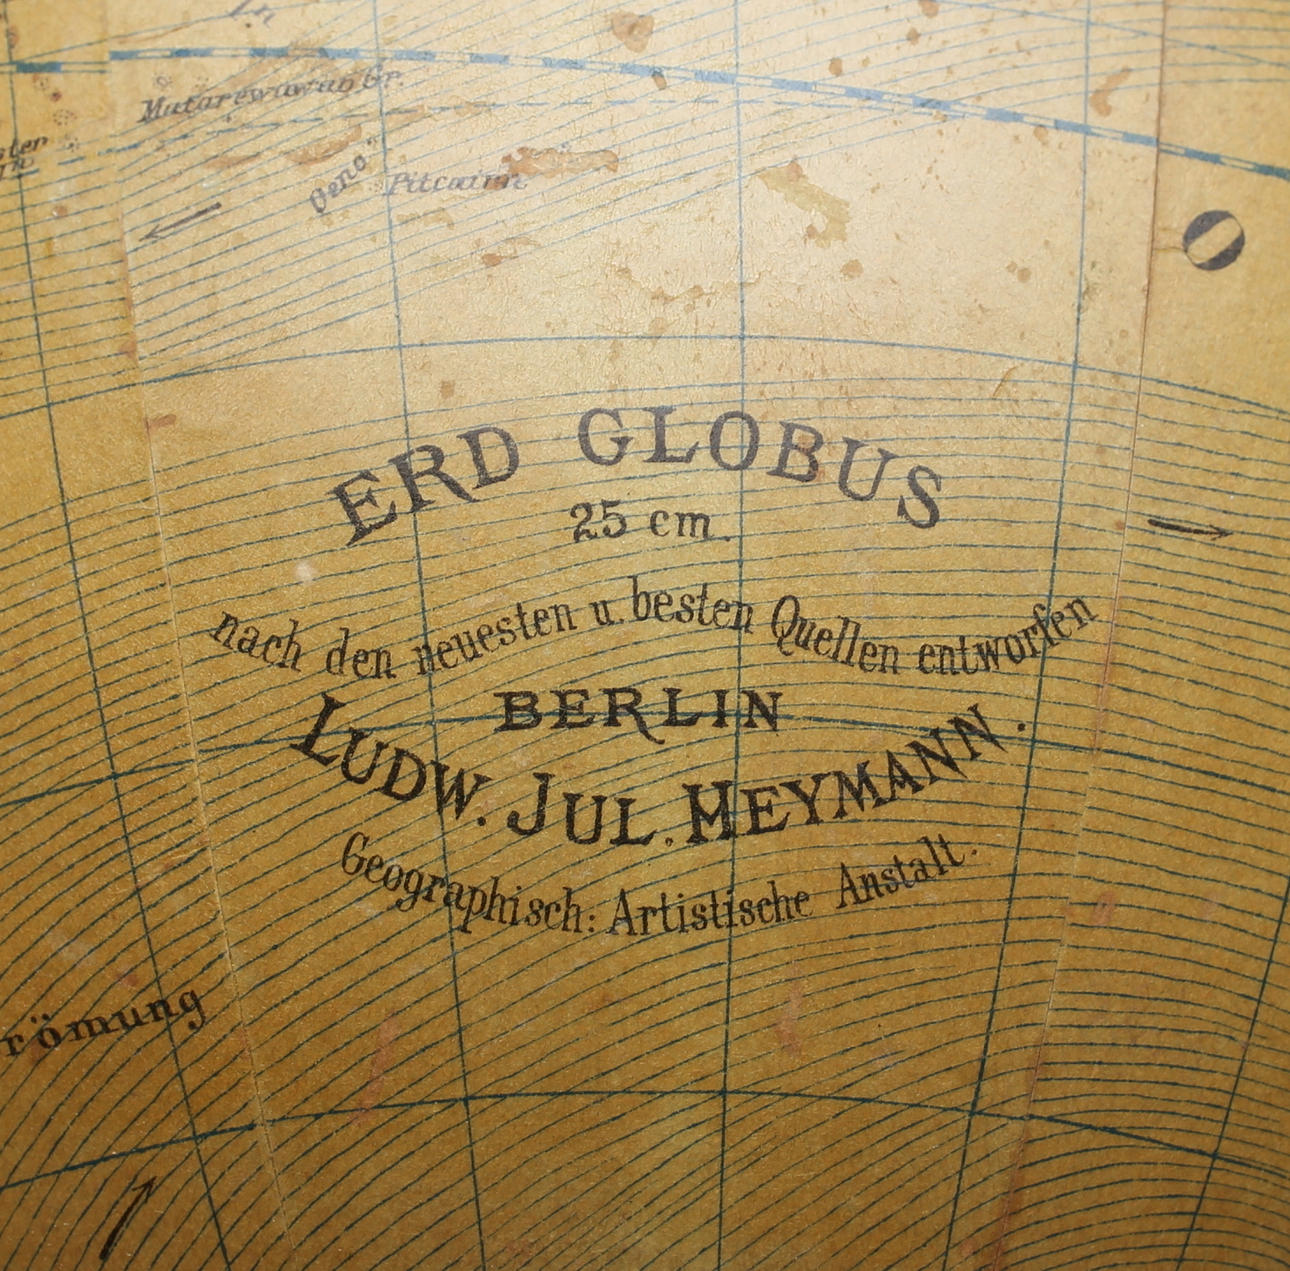 Mutarewawao Gr.
Oeno
Pitcairn
O
ERD GLOBUS
25 cm.
nach den neuesten u. besten Quellen entworfen
BERLIN
LUDW. JUL. HEYMANN.
Geographisch: Artistische Anstalt.
römung